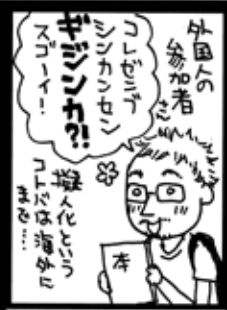 外国人の
参加者
さん
コレゼンブ
シンカンセン
ギジンカ?!
スゴーイ!
擬人化という
コトバは海外に
まで…
本